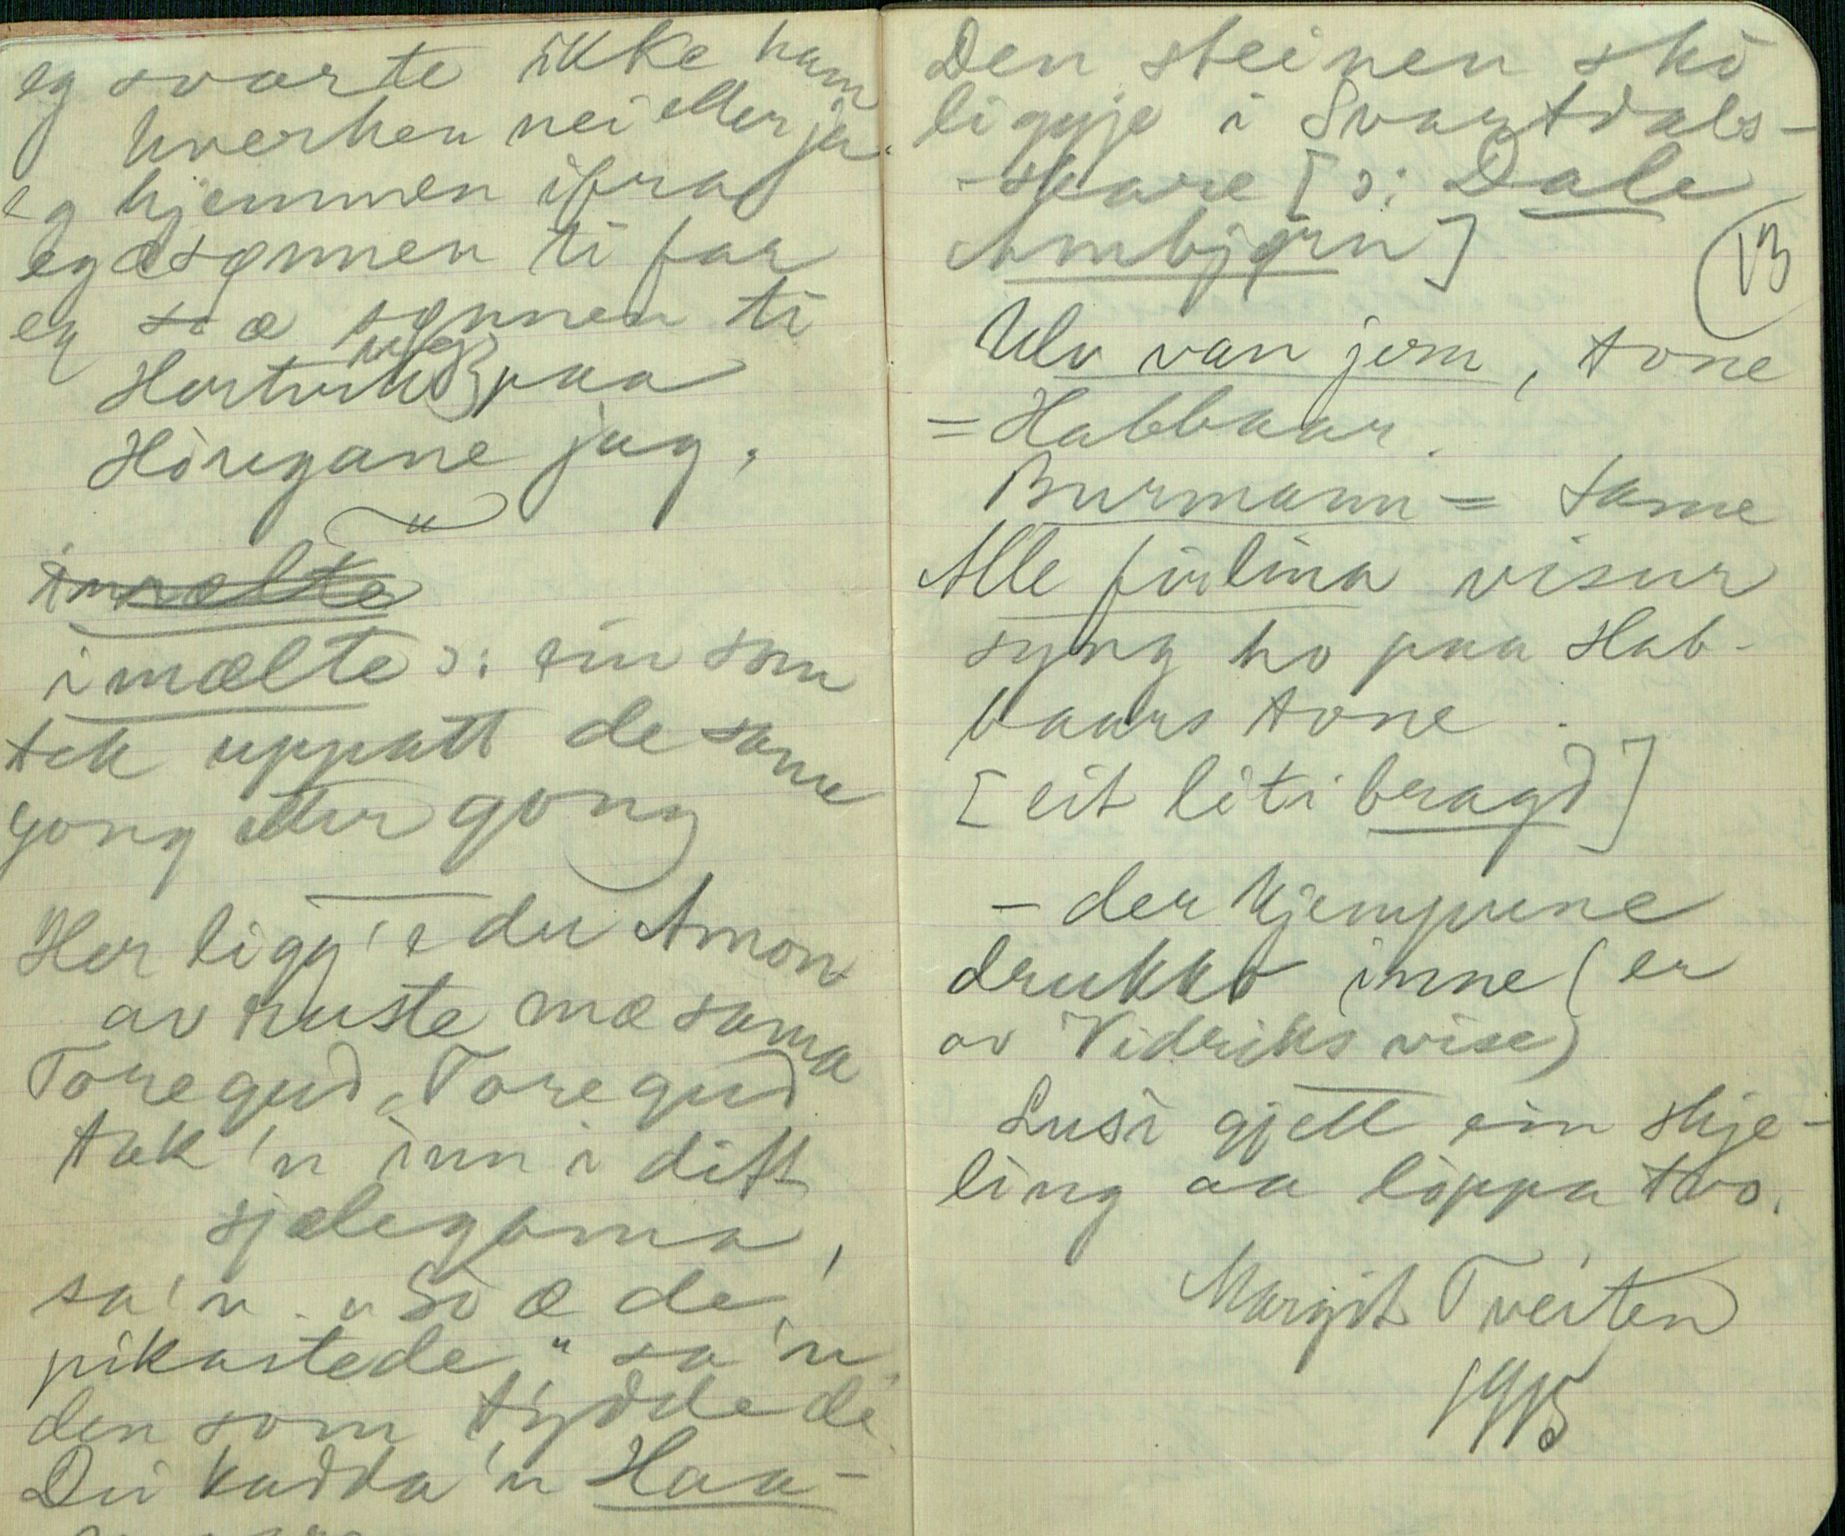 eg svarte ikke ham
hverken nei eller ja.
eg hjemmen ifra
eg æ sønnen ti far
eg so æ sønnen ti
Hertug
Hertuks paa
Höregane jag.
imælte
i mælte ɔ: ein som
tek uppatt de same
gong etter gong
Her ligg'e du Amon
av ruste mæ sama
Toregud, Toregud
tak 'n inn i ditt
sjælegama,
sa'n. "So æ de
pikastede," sa'n
den som tydde de
Dei kadda'n Haa-
Den steinen sko
liggje i Svartdals-
-skare [ɔ: Dale
Ambjørn]
13
Ulv van jern, tone
= Habbaar.
Burmann = same
Alle firlina visur
syng ho paa Hab-
baars tone.
[eit liti bragd]
- der kjempune
drukko inne (er
av Vidriks vise)
Lusi gjett ein skje-
ling aa loppa two.
Margit Tveiten
1915